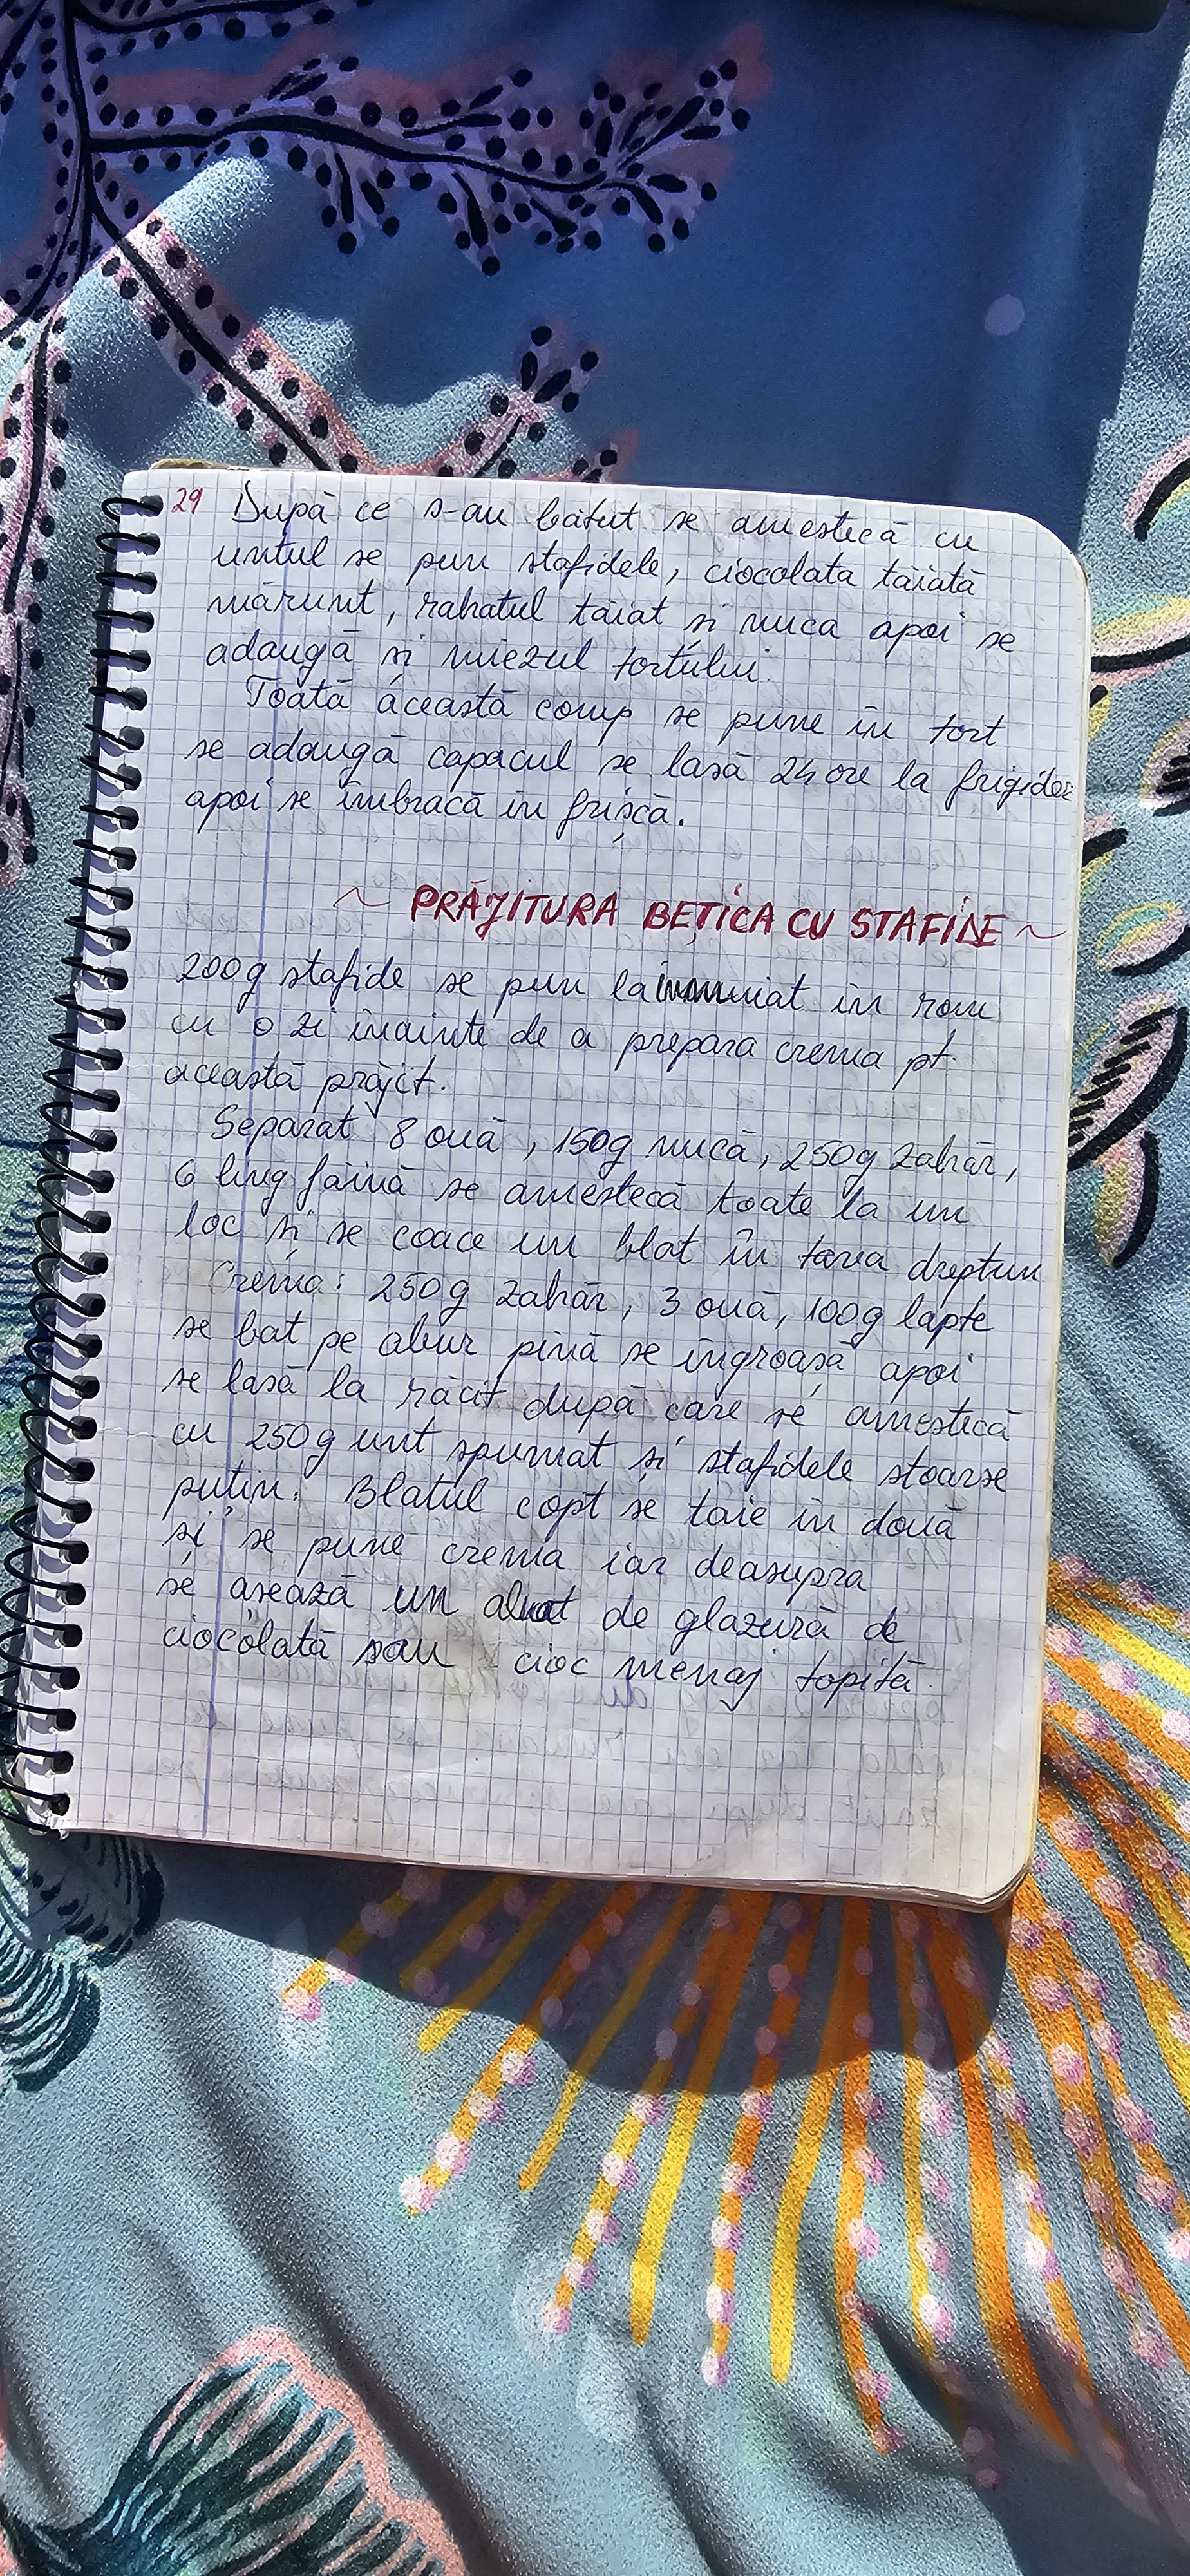 29 După ce s-au bătut se amestecă cu
untul se pun stafidele, ciocolata tăiată
mărunt, rahatul tăiat și nuca apoi se
adaugă și miezul tortului.
Toată această comp se pune în tort
se adaugă capacul se lasă 24 ore la frigider
apoi se îmbracă în frișcă.
~ PRĂJITURA BEȚICA CU STAFIDE ~
200g stafide se pun la înmuiat în rom
cu o zi înainte de a prepara crema pt.
această prăjit.
Separat 8 ouă, 150g nucă, 250g zahăr,
6 ling făină se amestecă toate la un
loc și se coace un blat în tava dreptun
Crema: 250g zahăr, 3 ouă, 100g lapte
se bat pe abur pînă se îngroașă apoi
se lasă la răcit după care se amestică
cu 250g unt spumat și stafidele stoarse
puțin. Blatul copt se taie în două
și se pune crema iar deasupra
se așează un de glazură de
ciocolată sau cioc menaj topită.